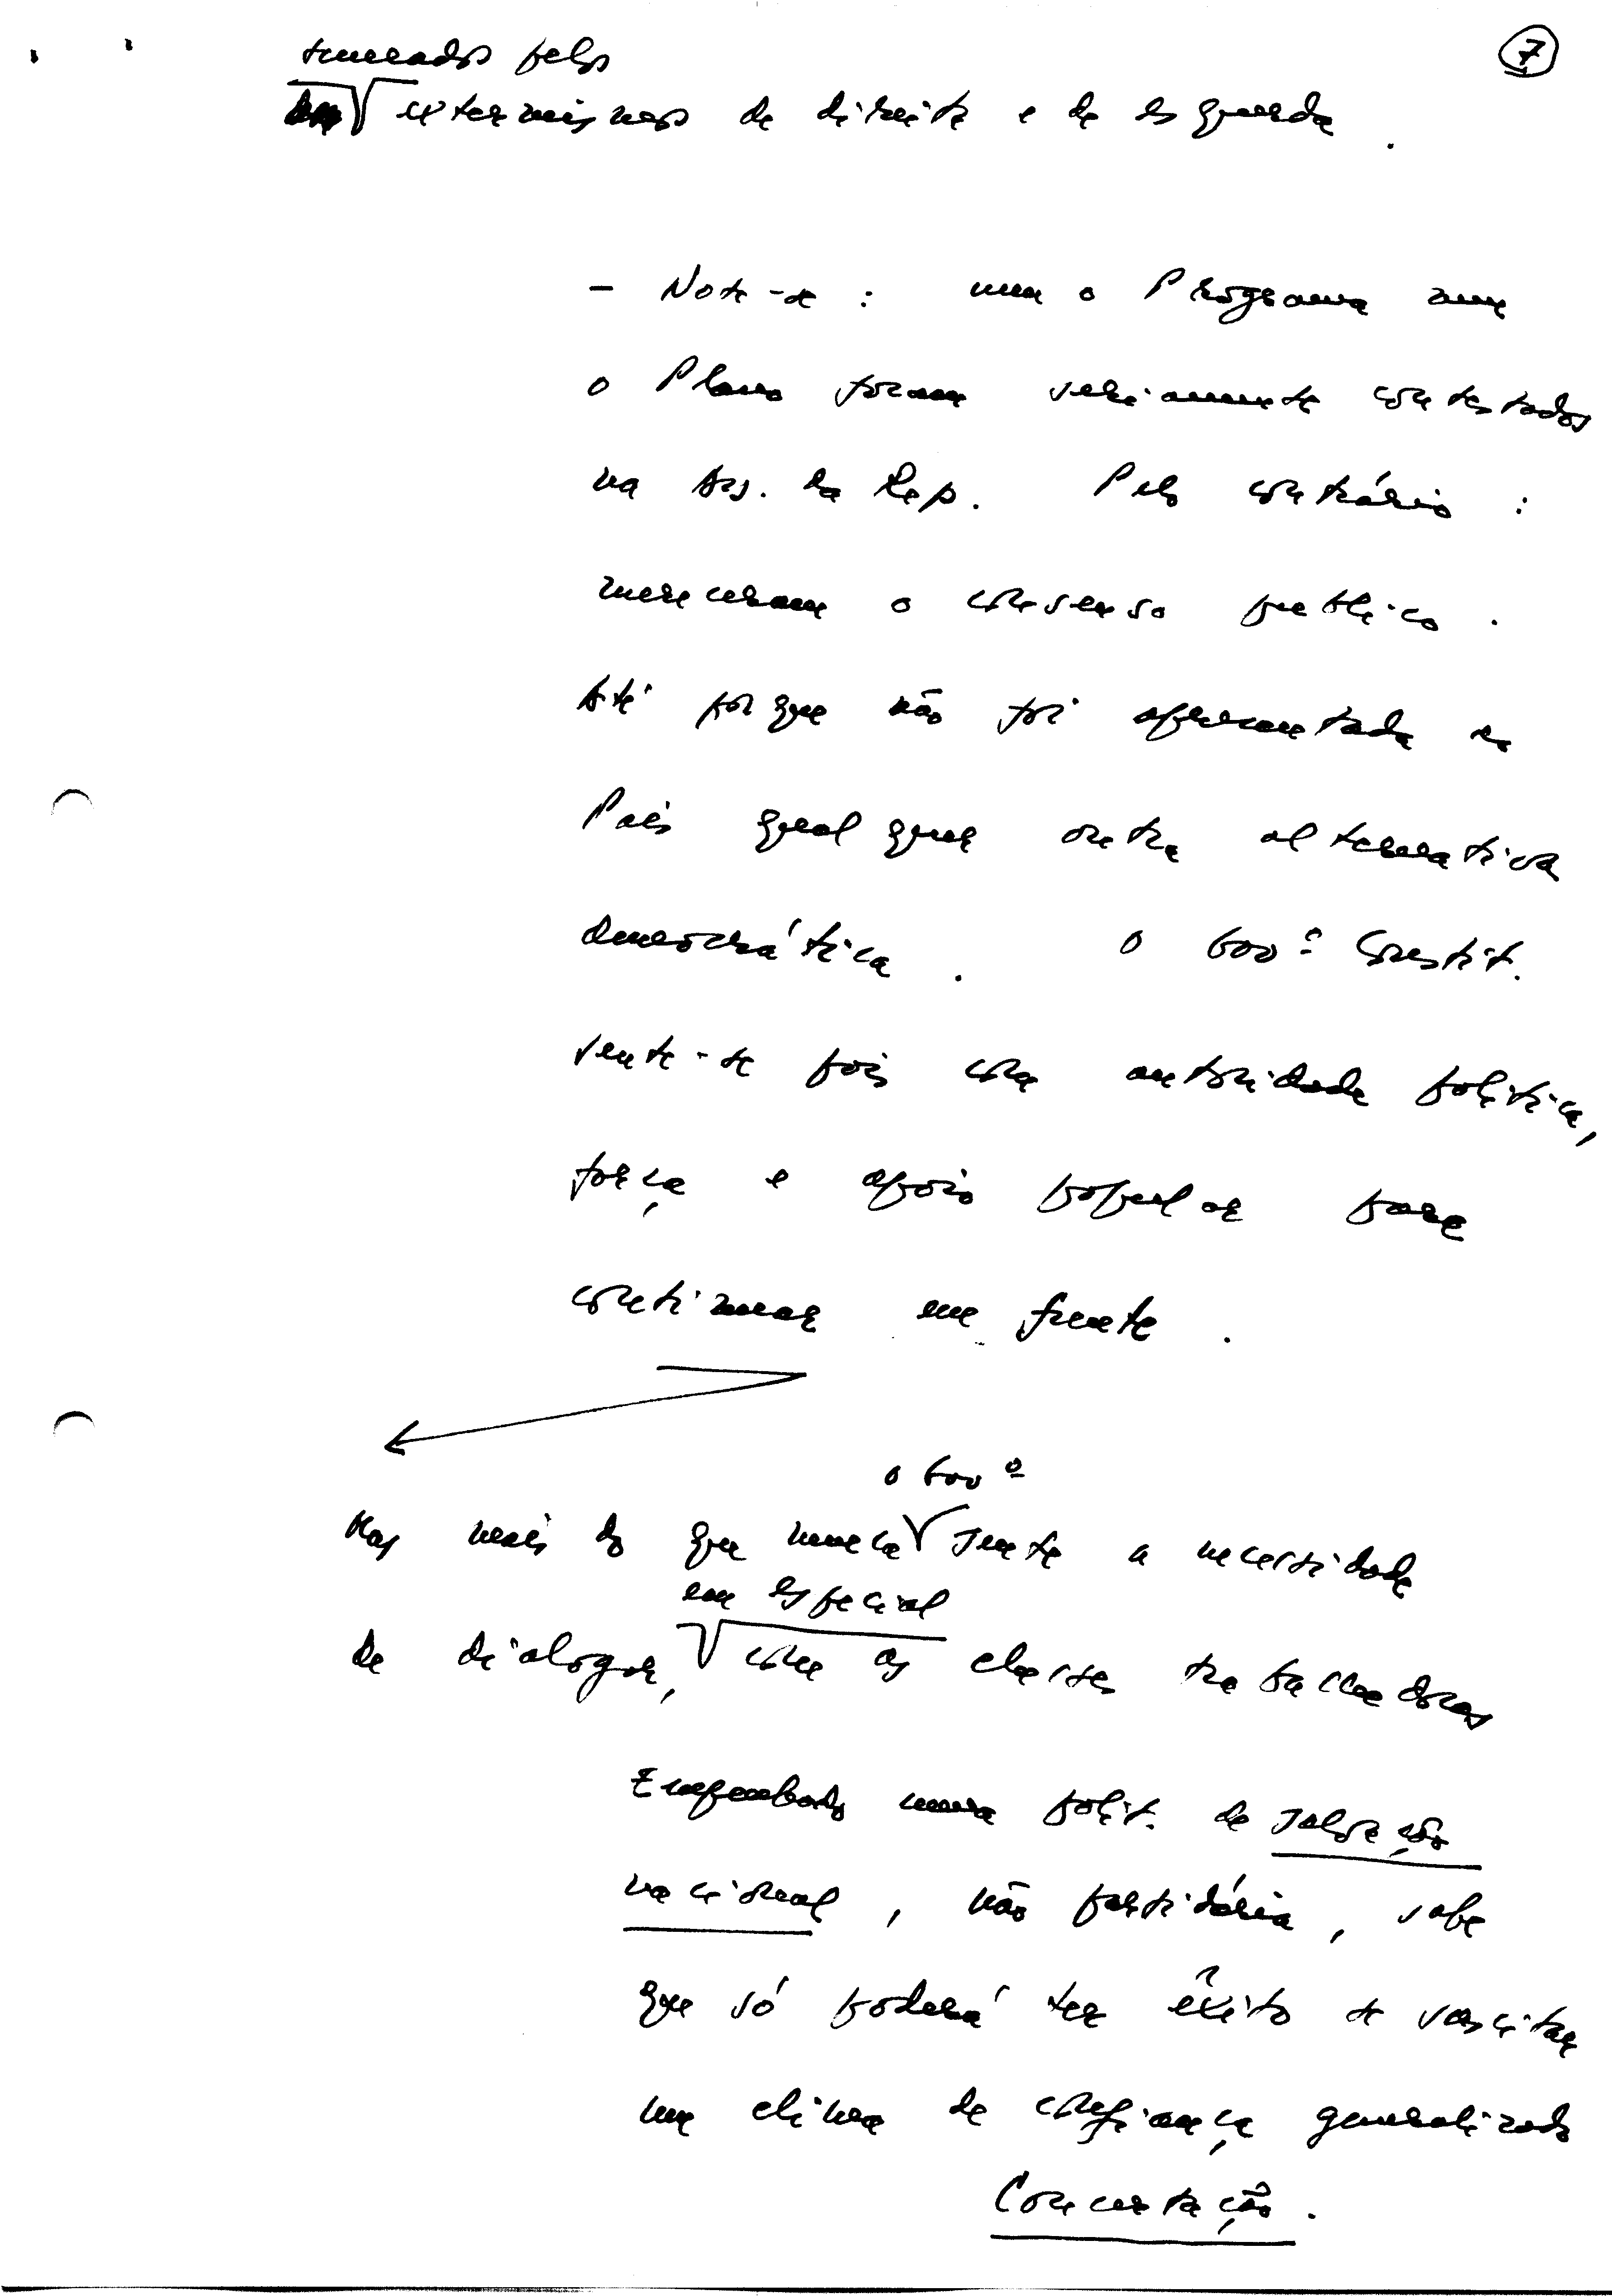 7
pelos
extremismos de direita e de esquerda.
- Note-se: nem o Programa nem
o Plano foram seriamente contestados
na Ass. da Rep. Pelo contrário:
mereceram o consenso público.
Até porque não foi apresentada ao
País qualquer outra alternativa
democrática. O Govº Constit.
sente-se pois com autoridade política,
força e apoio popular para
continuar em frente.
o Govº
Mas mais do que nunca sente a necessidade
em especial
de dialogar, com as classes trabalhadoras
Empenhado numa polit. de salvação
nacional, não partidária, sabe
que só poderá ter êxito se suscitar
um clima de confiança generalizado
Concertação.